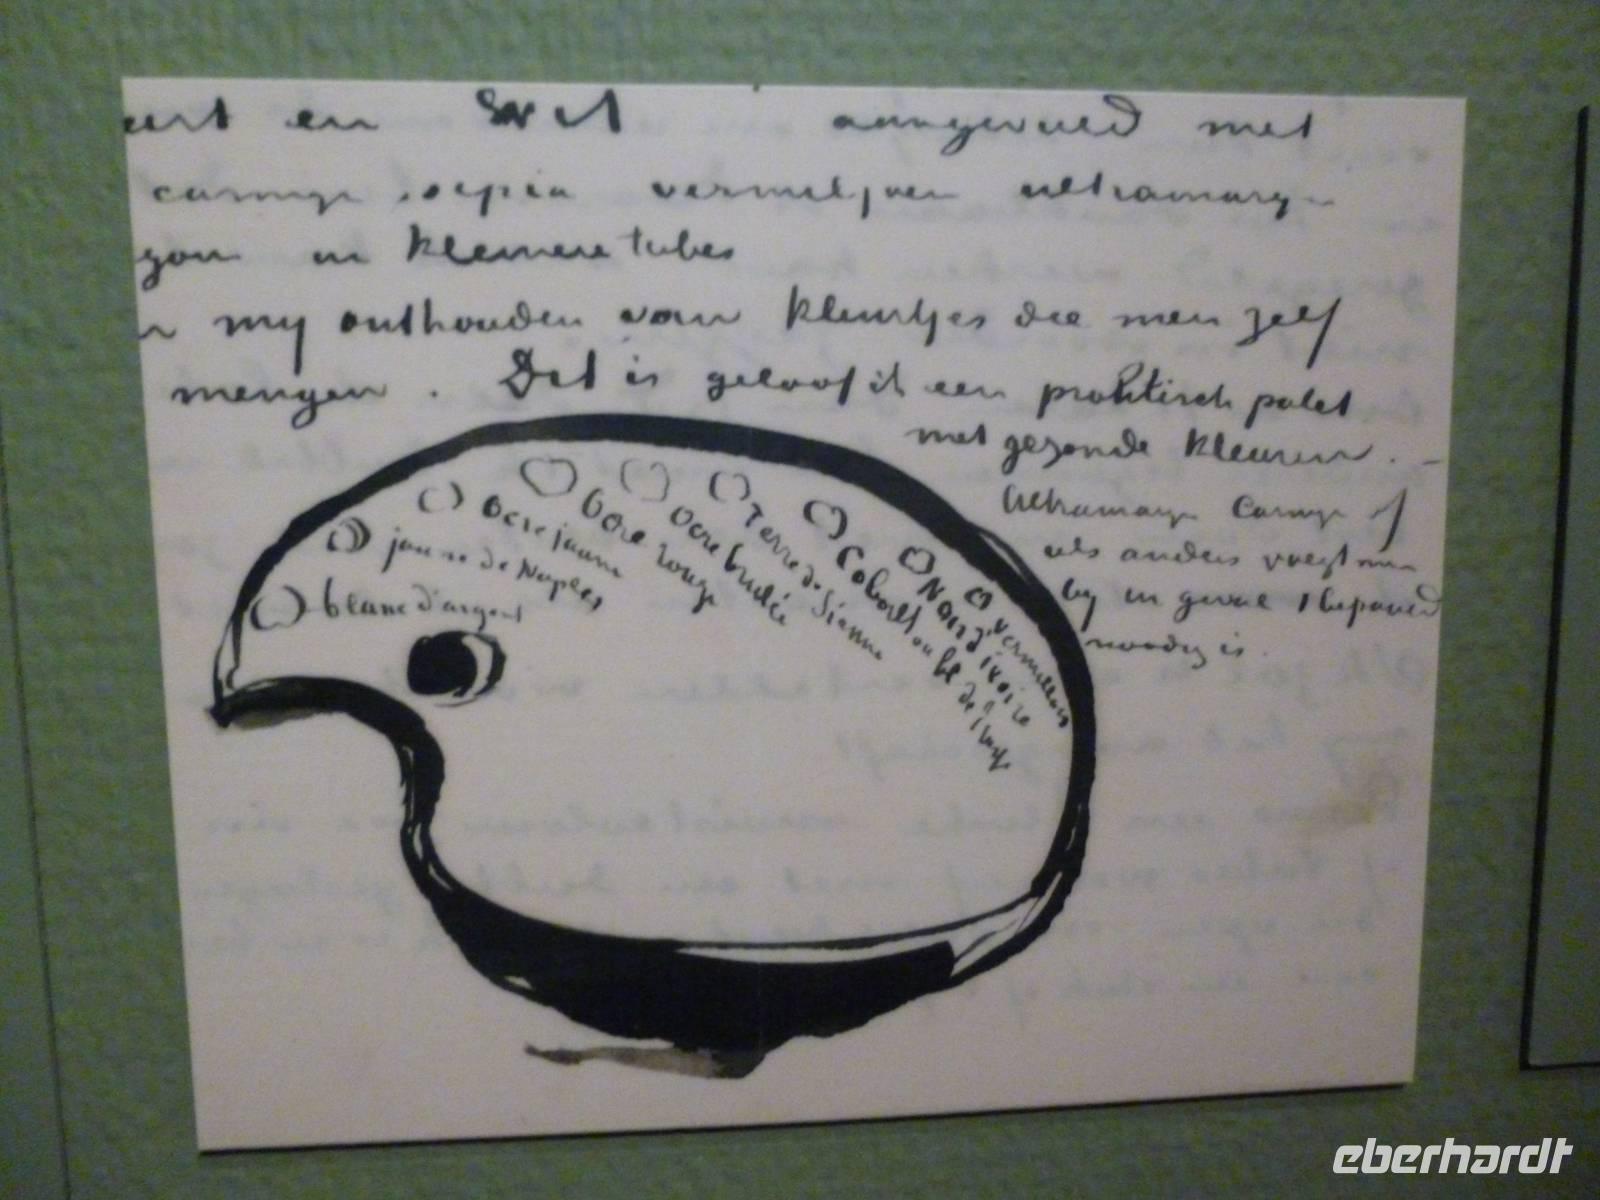 en wit aangevuld met
carmyn sepia vermiljoen ultramaryn
gom in kleinere tubes
my onthouden van kleurtjes die men zelf
mengen. Dit is geloof ik een praktisch palet
met gezonde kleuren. —
Ultramaryn Carmyn of
als anders voegt men
by in geval 't bepaald
noodig is.
blanc d'argent
jaune de Naples
Ocre jaune
Ocre rouge
Ocre brulée
Terre de Sienne
Cobalt ou bl de
Noir d'ivoire
Vermillon
eberhardt